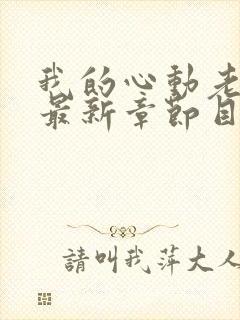 我的心動老
最新章節目
請叫我萍大人